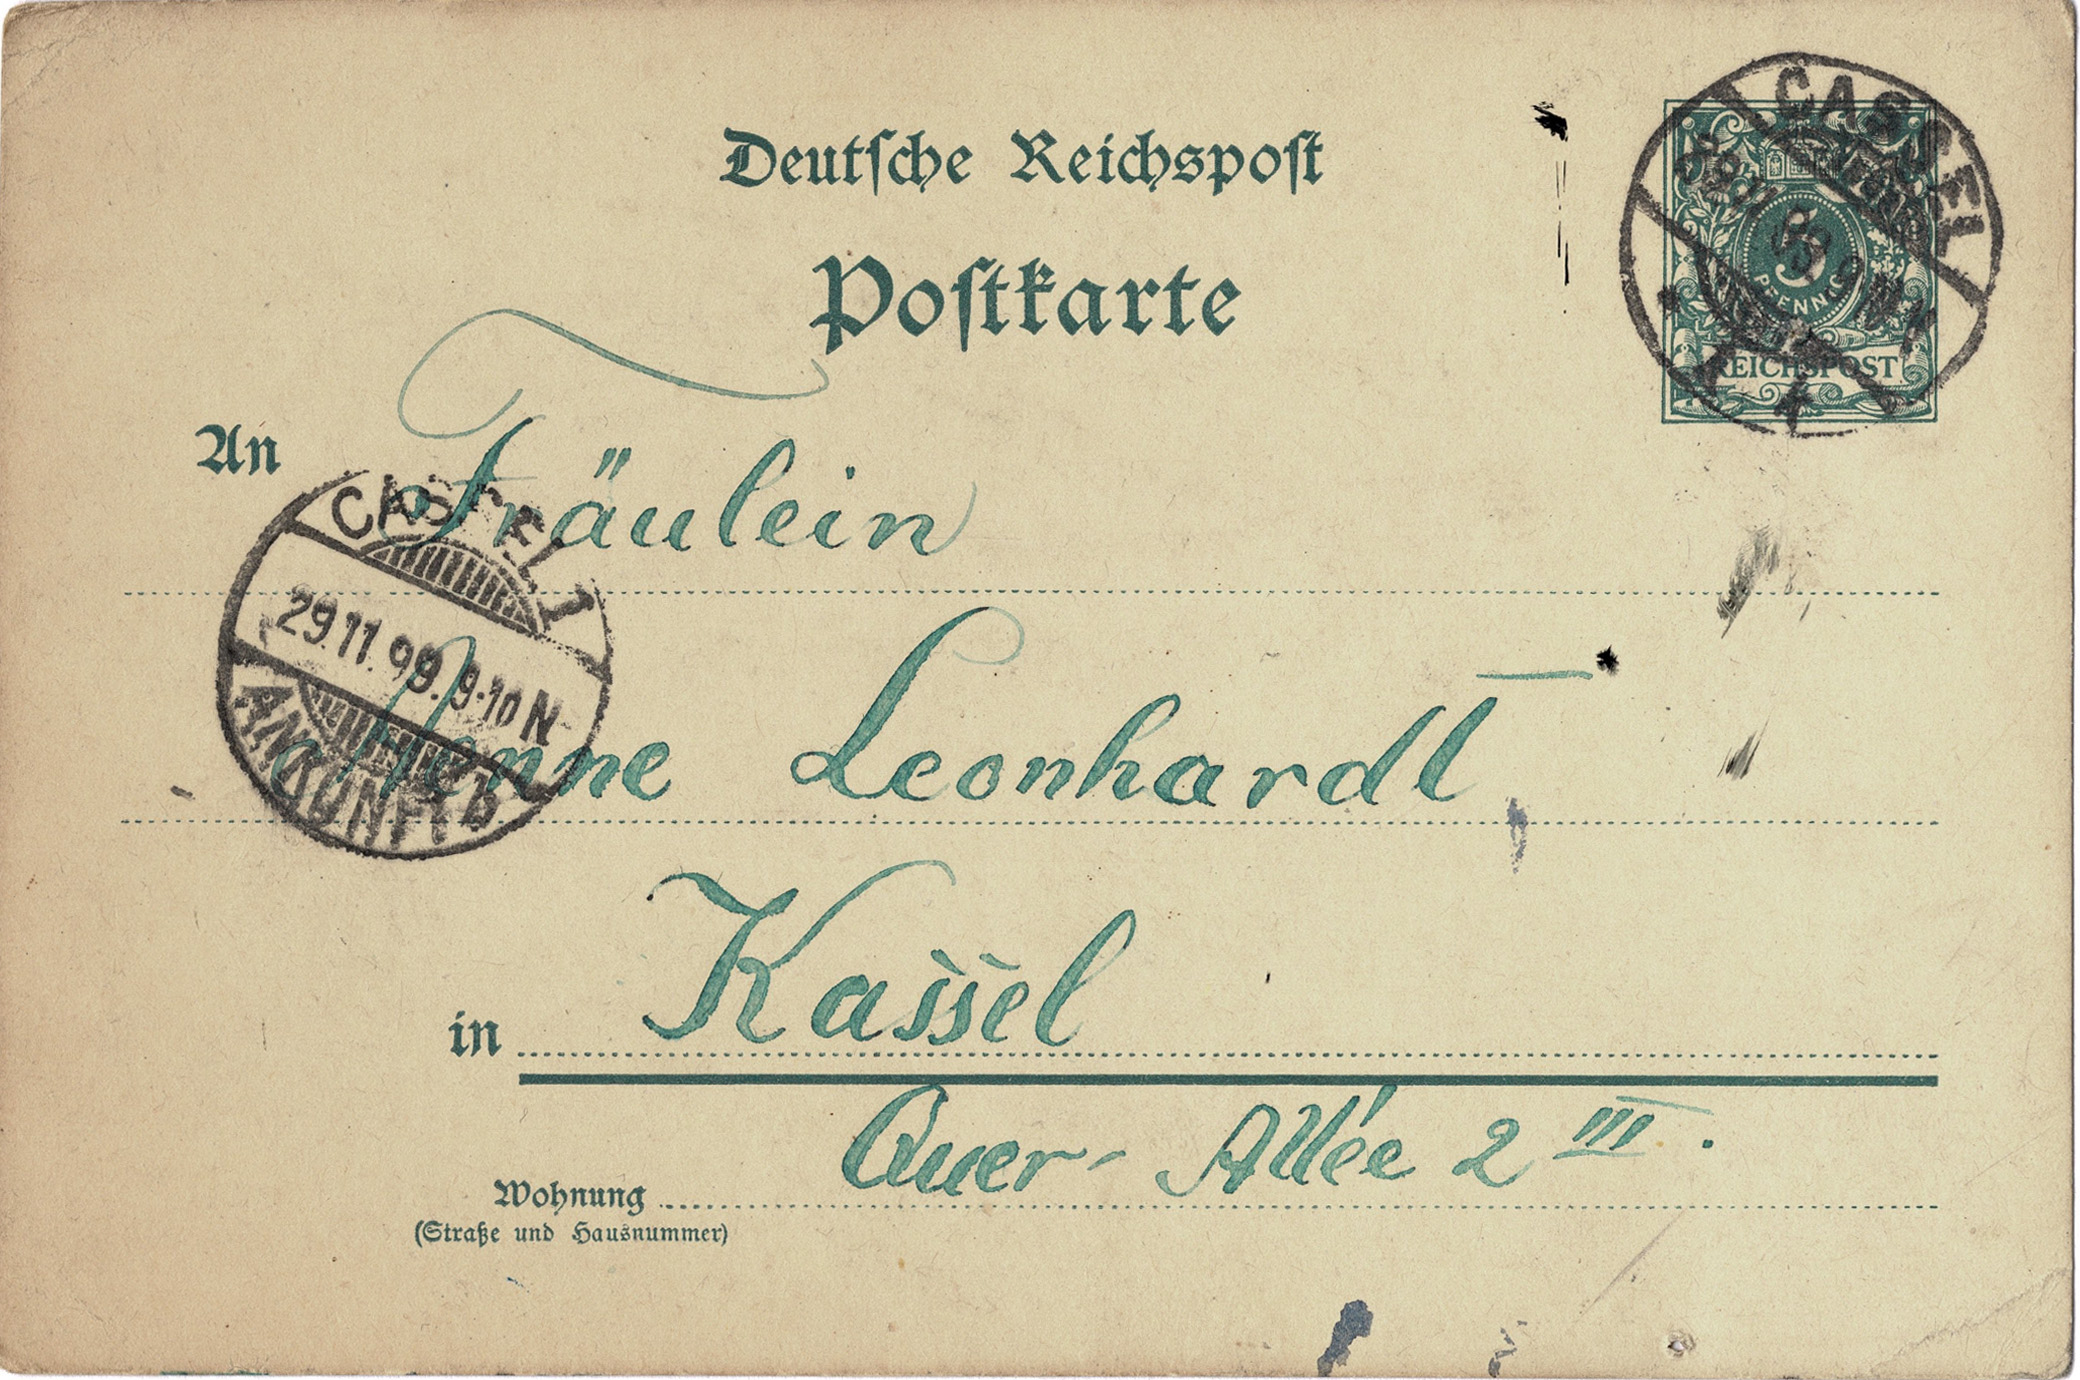 Deutsche Reichspost
Postkarte
CASSEL
5
PFENNIG
REICHSPOST
k
An Fräulein
CASSEL 1
29.11.99. 9-10 N
ANKUNFT
Aenne Leonhardt
in Kassel
Quer- Allée 2 III.
Wohnung
(Straße und Hausnummer)